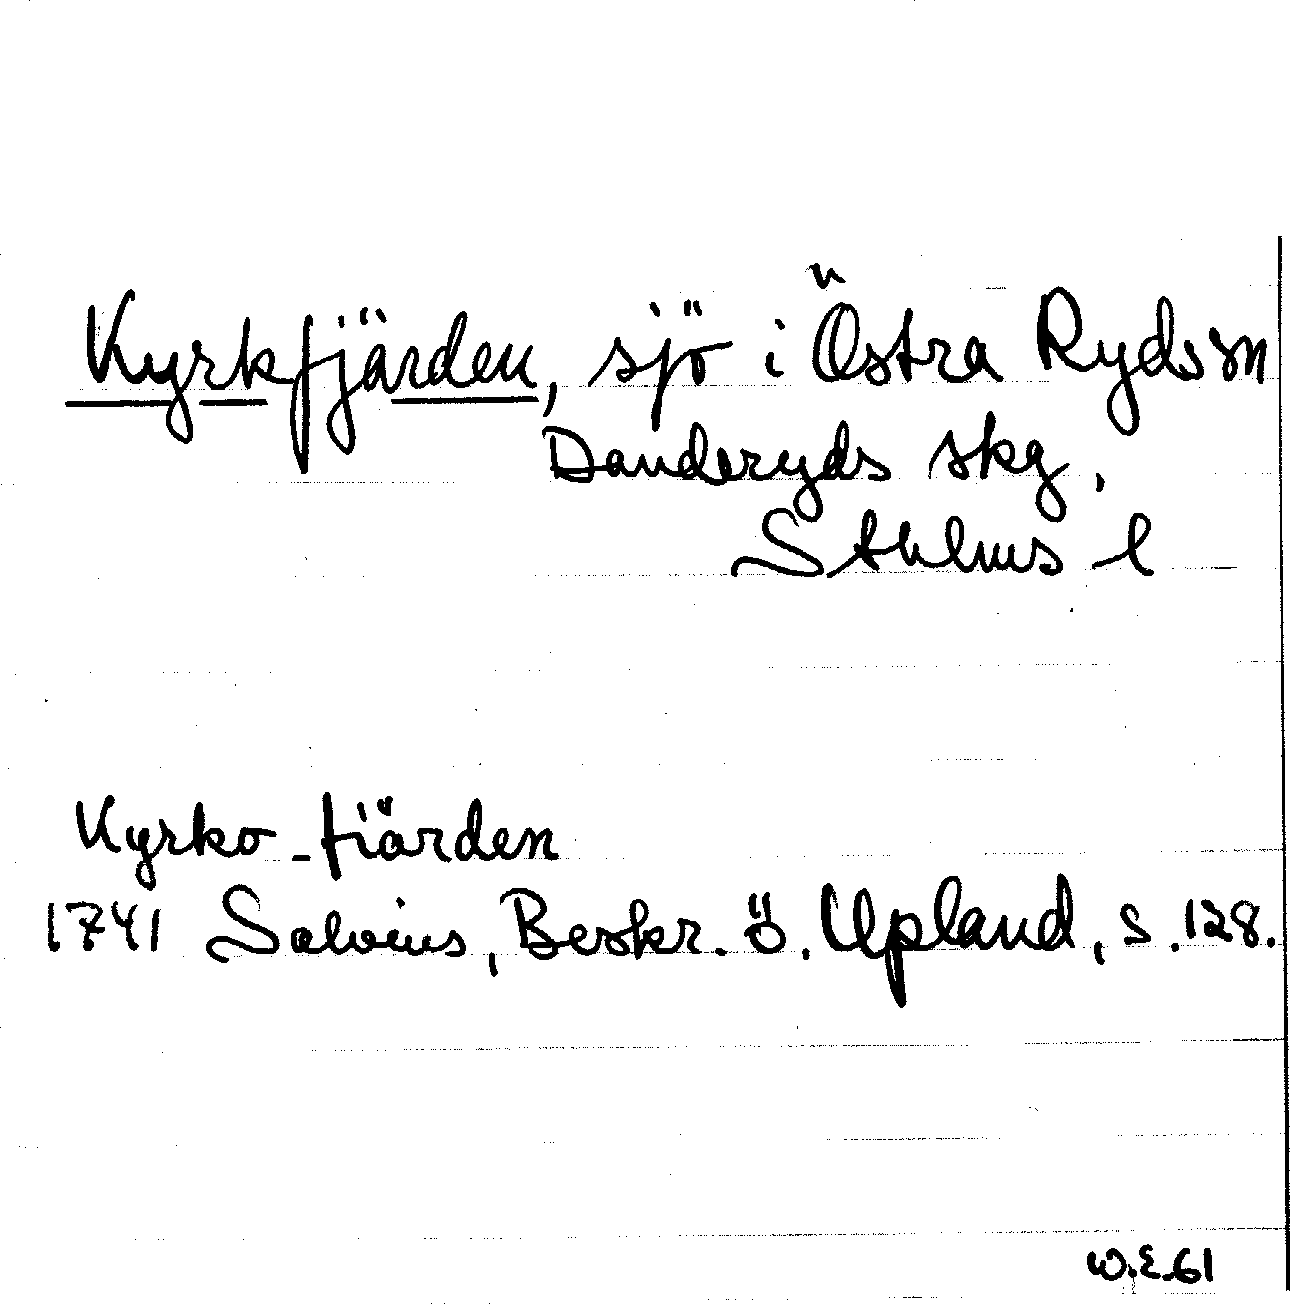 Kyrkfjärden, sjö i Östra Ryds sn
Danderyds skg,
Sthlms l
Kyrko-fiärden
1741 Salvius, Beskr. ö. Upland, s. 128.
W.E. 61